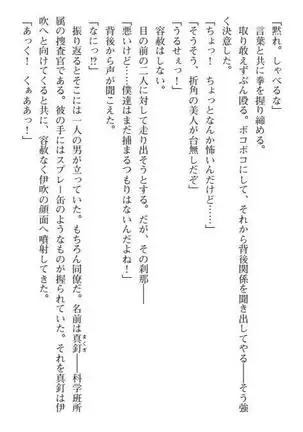 「黙れ。しゃべるな」
言葉と共に拳を握り締める。
取り敢えずぶん殴る。ボコボコにして、それから背後関係を聞き出してやる――そう強
く決意した。
「ちょっ！　ちょっとなんか怖いんだけど……」
「うるせぇっ！」
「そうだぞ、折角の美人が台無しだぞ」
容赦はしない。
目の前の二人に対して走り出そうとする。だが、その刹那――
「悪いけど……僕達はまだ捕まるつもりはないんだよね！」
背後から声が聞こえた。
「なにっ!?」
振り返るとそこには一人の男が立っていた。もちろん同僚だ。名前は真釘――科学班所
属の捜査官である。彼の手にはスプレー缶のようなものが握られていた。それを真釘は伊
吹へと向けてくると共に、容赦なく伊吹の顔面へ噴射してきた。
「あっく！　くぁああっ！」